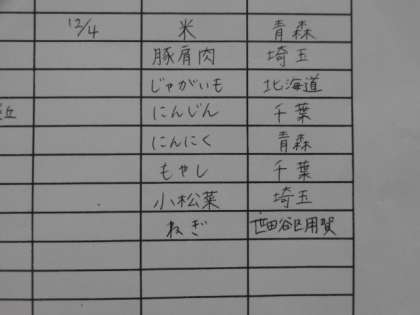 12/4 米 青森
豚肩肉 埼玉
じゃがいも 北海道
にんじん 千葉
にんにく 青森
もやし 千葉
小松菜 埼玉
ねぎ 世田谷区用賀